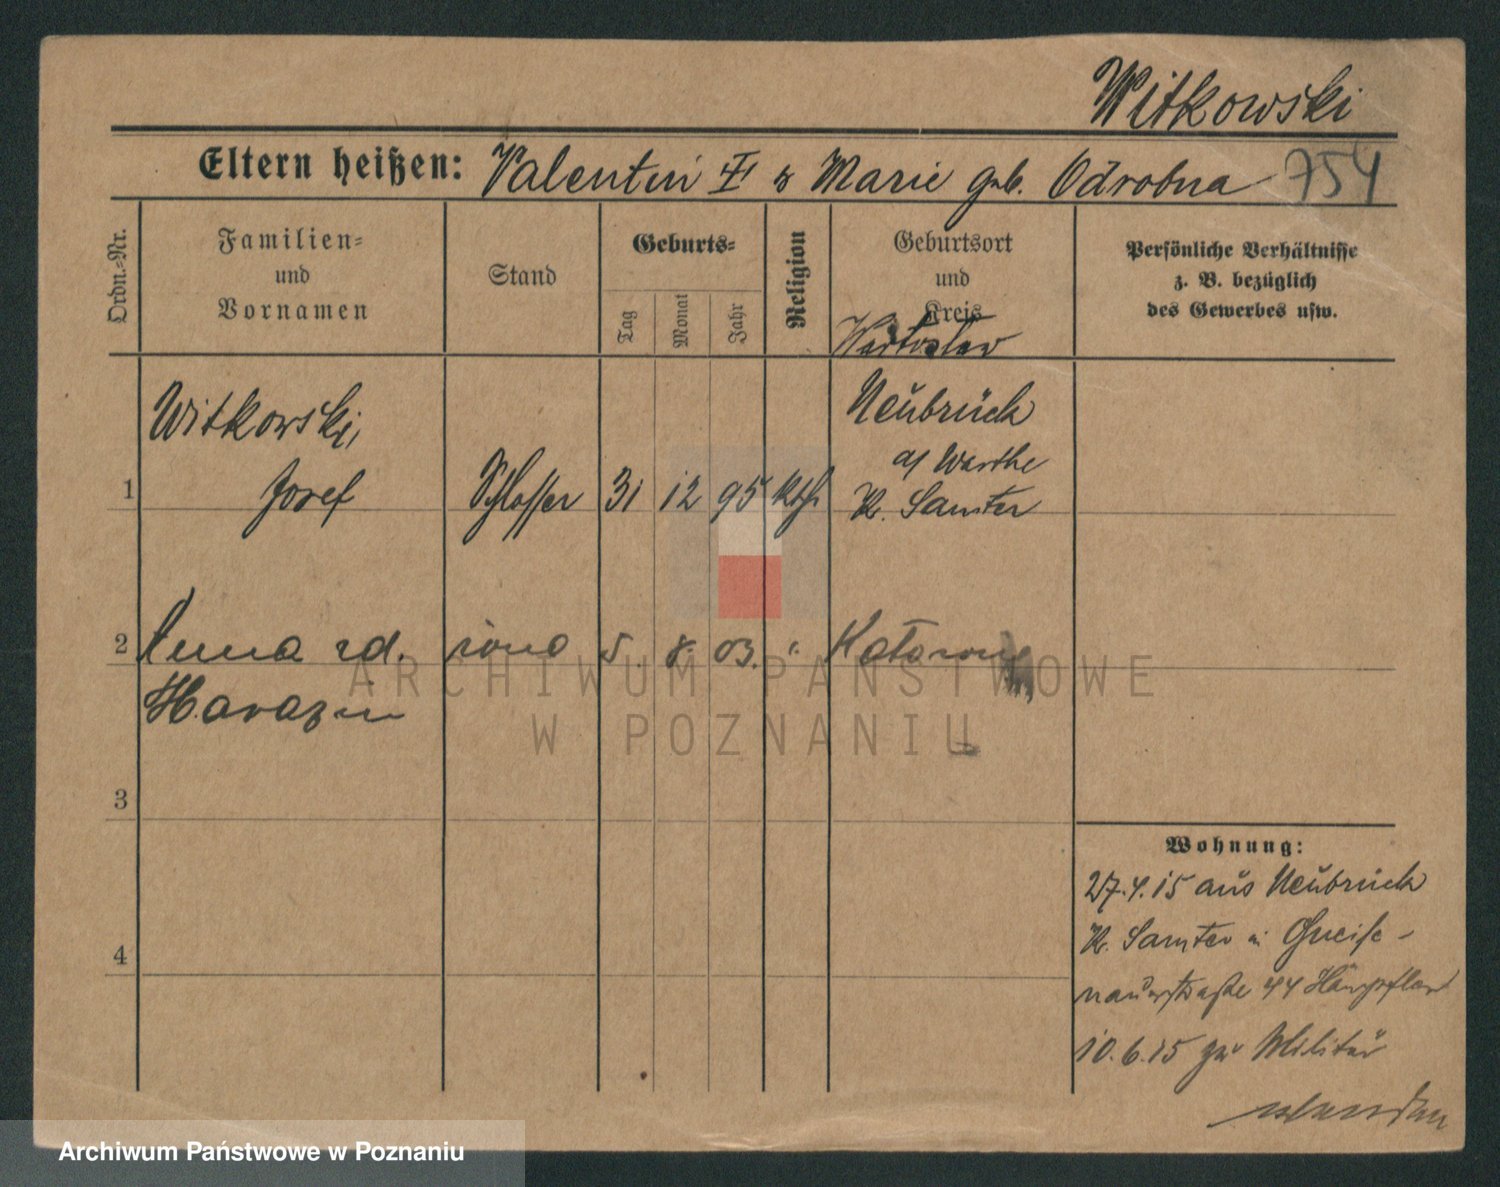 Witkowski
Eltern heißen: Valentin II & Marie geb. Odrobna 754
Ordn.-Nr.
Familien-
und
Vornamen
Stand
Geburts-
Tag
Monat
Jahr
Religion
Geburtsort
und
Kreis
Persönliche Verhältnisse
z. B. bezüglich
des Gewerbes usw.
Wartoslaw
Witkowski,
1 Josef Schlosser 31 12 95 kth
Neubrück
a/ Warthe
Kr. Samter
2 Anna zd. żona 5. 8. 03. "
Harazin
3
4
Wohnung:
27.4.15 aus Neubrück
Kr. Samter in Gneise-
naustraße 44
10.6.15 zu Militär
ARCHIWUM PAŃSTWOWE
W POZNANIU
Archiwum Państwowe w Poznaniu